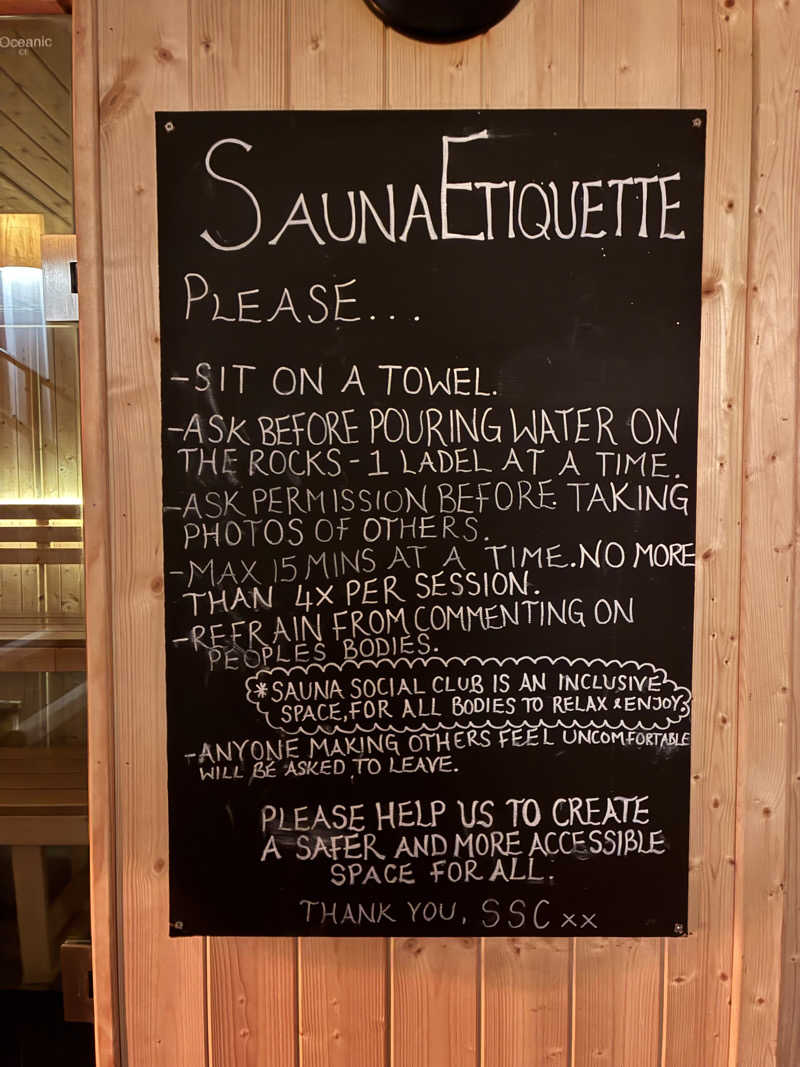 Oceanic
CE
SAUNA ETIQUETTE
PLEASE...
-SIT ON A TOWEL.
-ASK BEFORE POURING WATER ON
THE ROCKS - 1 LADEL AT A TIME.
-ASK PERMISSION BEFORE TAKING
PHOTOS OF OTHERS.
-MAX 15 MINS AT A TIME. NO MORE
THAN 4X PER SESSION.
-REFRAIN FROM COMMENTING ON
PEOPLES BODIES.
*SAUNA SOCIAL CLUB IS AN INCLUSIVE
SPACE, FOR ALL BODIES TO RELAX & ENJOY.
-ANYONE MAKING OTHERS FEEL UNCOMFORTABLE
WILL BE ASKED TO LEAVE.
PLEASE HELP US TO CREATE
A SAFER AND MORE ACCESSIBLE
SPACE FOR ALL.
THANK YOU, SSC xx